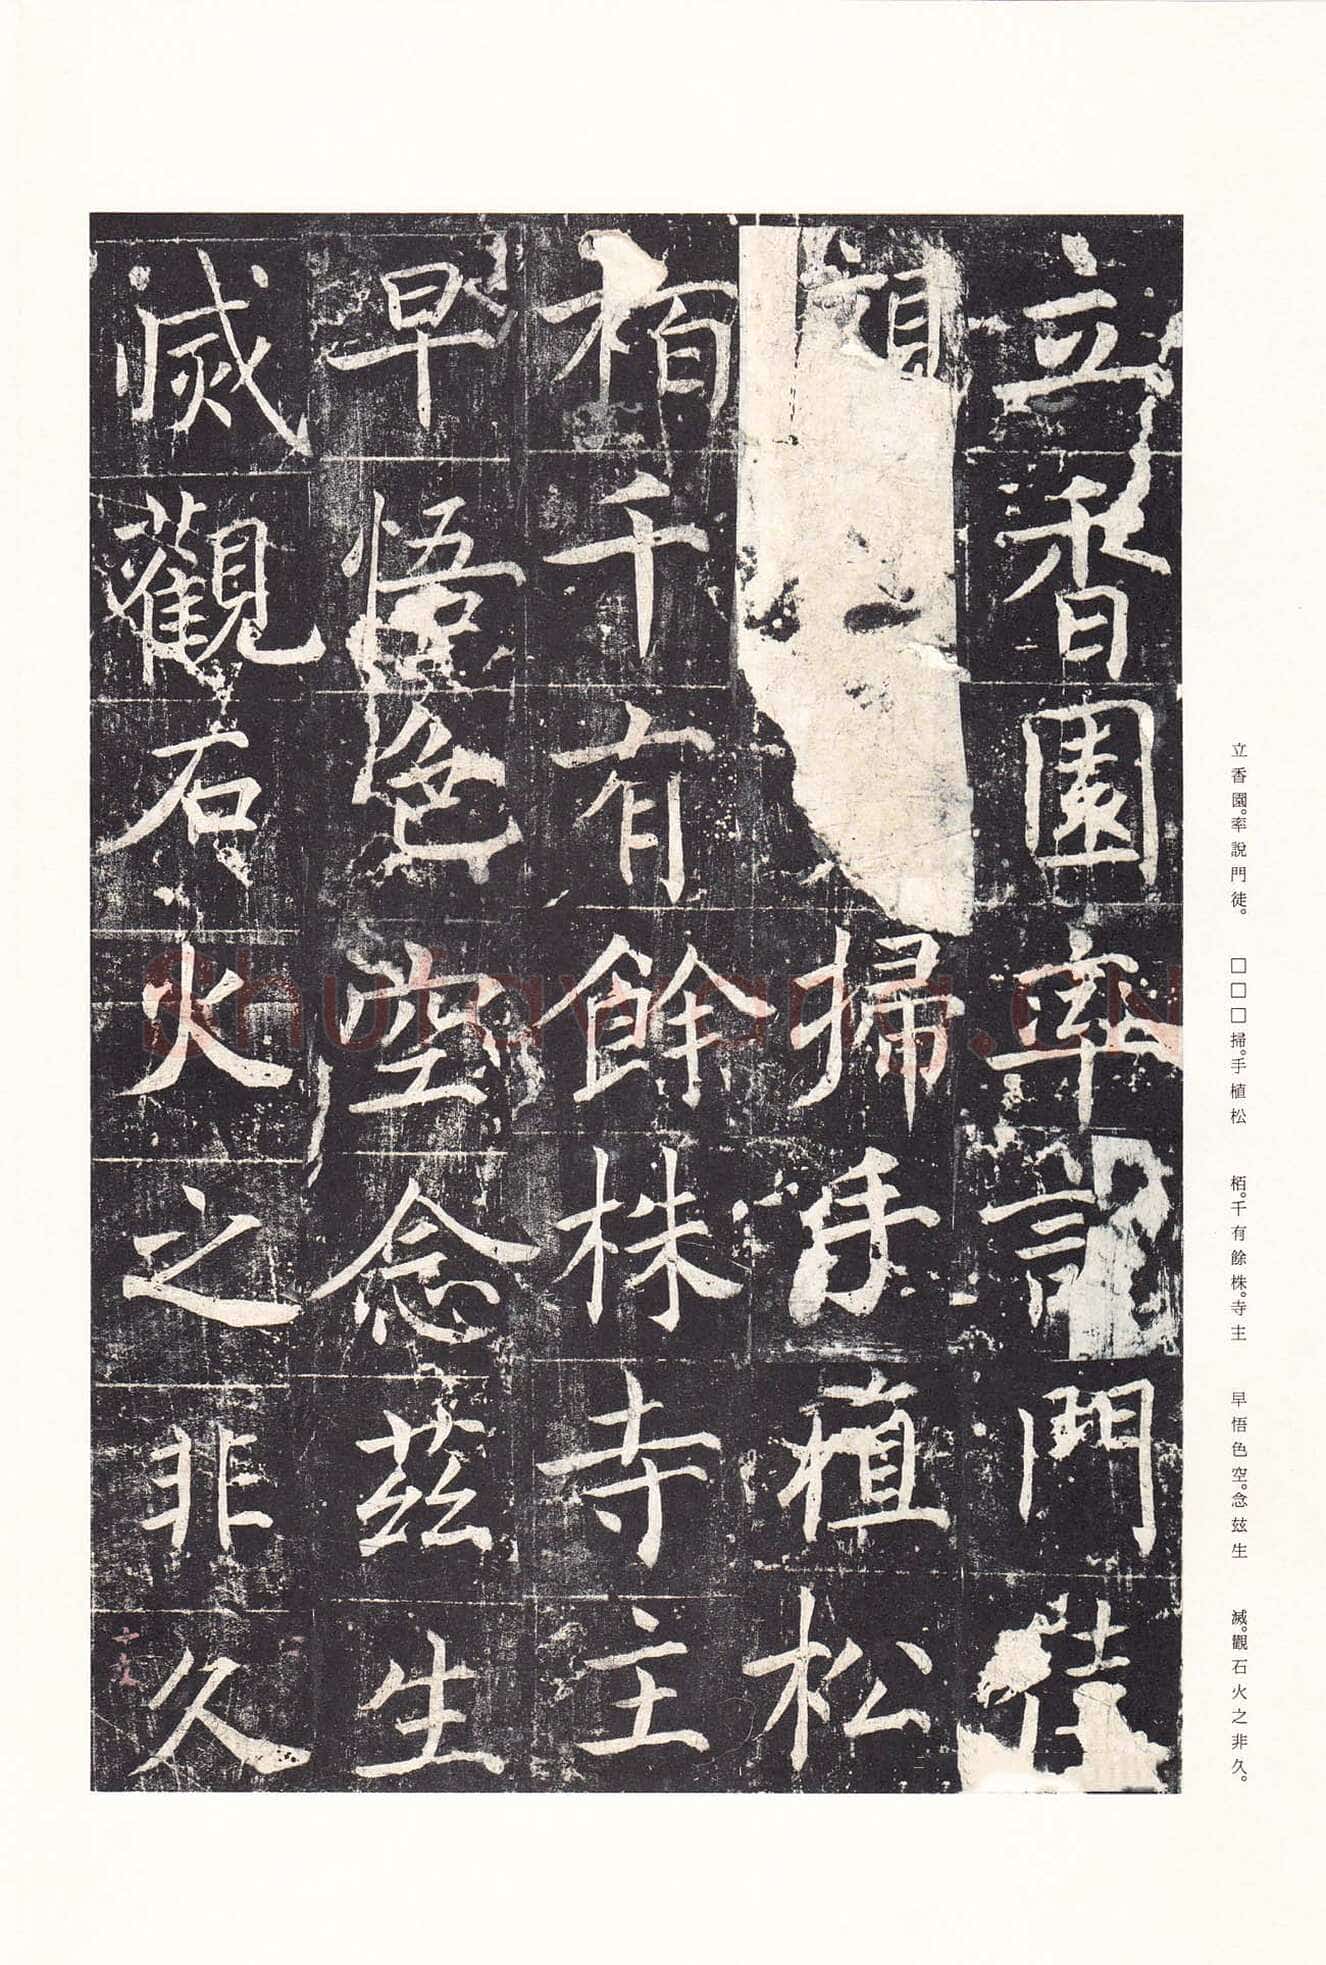 立香園率說門徒
掃手植松
栢千有餘株寺主
早悟色空念茲生
滅觀石火之非久
立香園。率說門徒。 □□□掃。手植松 栢。千有餘株。寺主 早悟色空。念茲生 滅。觀石火之非久。
shufawang.cn